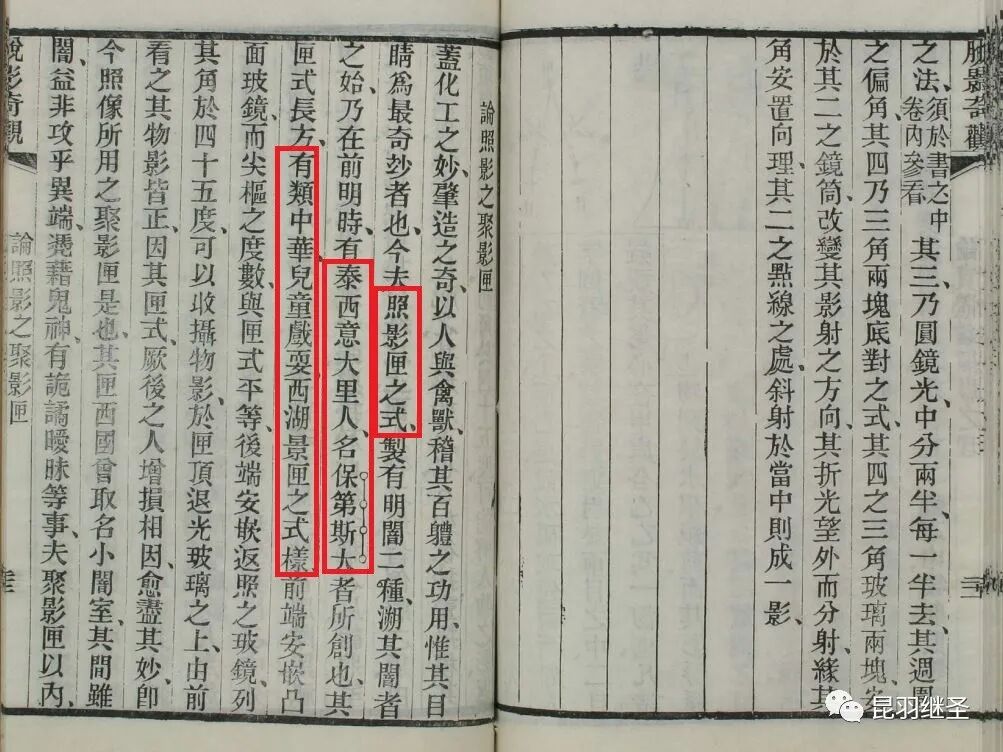 脫影奇觀
三
之法、須於書之中卷內參看其三乃圓鏡光中分兩半每一半去其週圍
之偏角、其四乃三角兩塊底對之式、其四之三角玻璃兩塊安
於其二之鏡筒、改變其影射之方向、其折光望外而分射、緣其
角安置向理、其二之點線之處、斜射於當中則成一影、
論照影之聚影匣
蓋化工之妙、肇造之奇、以人與禽獸、稽其百體之功用、惟其目
睛爲最奇玅者也、今夫照影匣之式、製有明闇二種、溯其闇者
之始、乃在前明時、有泰西意大里人名保第斯大者所創也、其
匣式長方、有類中華兒童戲耍西湖景匣之式樣、前端安嵌凸
面玻鏡、而尖樞之度數、與匣式平等、後端安嵌返照之玻鏡、列
其角於四十五度、可以收攝物影、於匣頂退光玻璃之上、由前
看之、其物影皆正、因其匣式、厥後之人增損相因、愈盡其妙、卽
今照像所用之聚影匣是也、其匣西國曾取名小闇室、其間雖
闇、益非攻乎異端、凴藉鬼神、有詭譎曖昧等事、夫聚影匣以內、
脫影奇觀
論照影之聚影匣
昆羽继圣